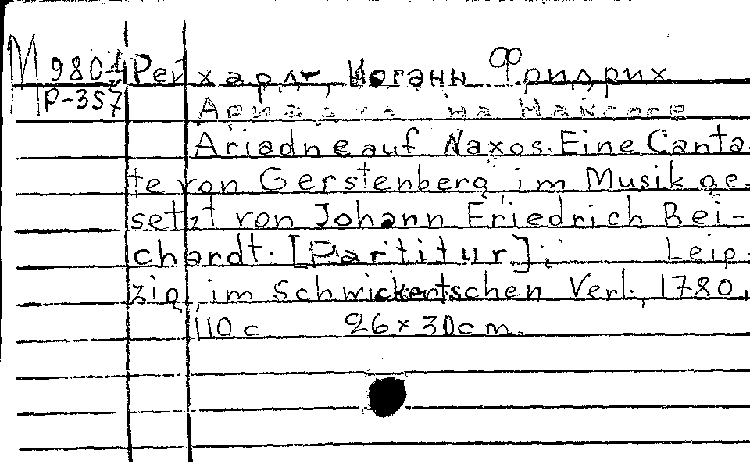 М 9804 Рейхардт, Иоганн Фридрих
Р-357 Ариадна на Наксосе
Ariadne auf Naxos. Eine Canta-
te von Gerstenberg, im Musik ge-
setzt von Johann Friedrich Rei-
chardt. [Partitur]. Leip-
zig, im Schwickertschen Verl., 1780.
110 с 26 x 30 cm.